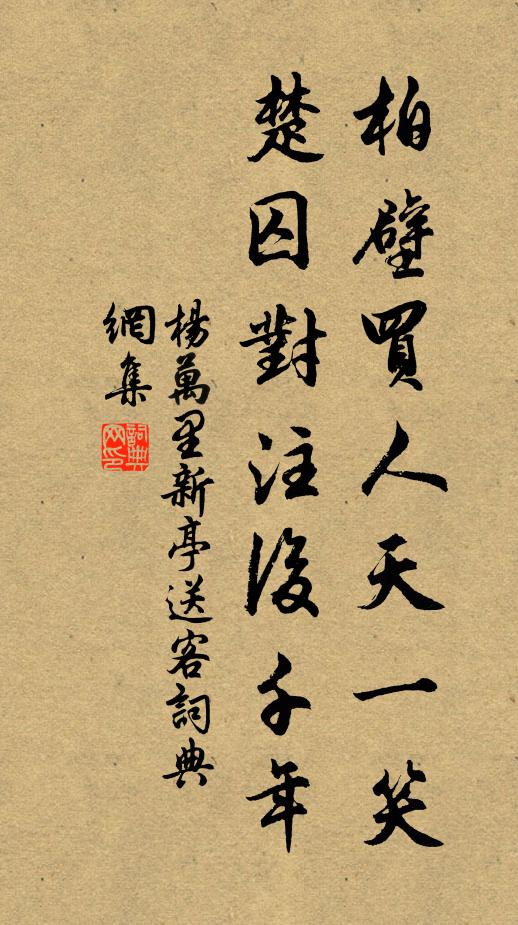 柏壁買人天一笑
楚囚對注後千年
楊萬里新亭送客詞典
網集
詞典
网印